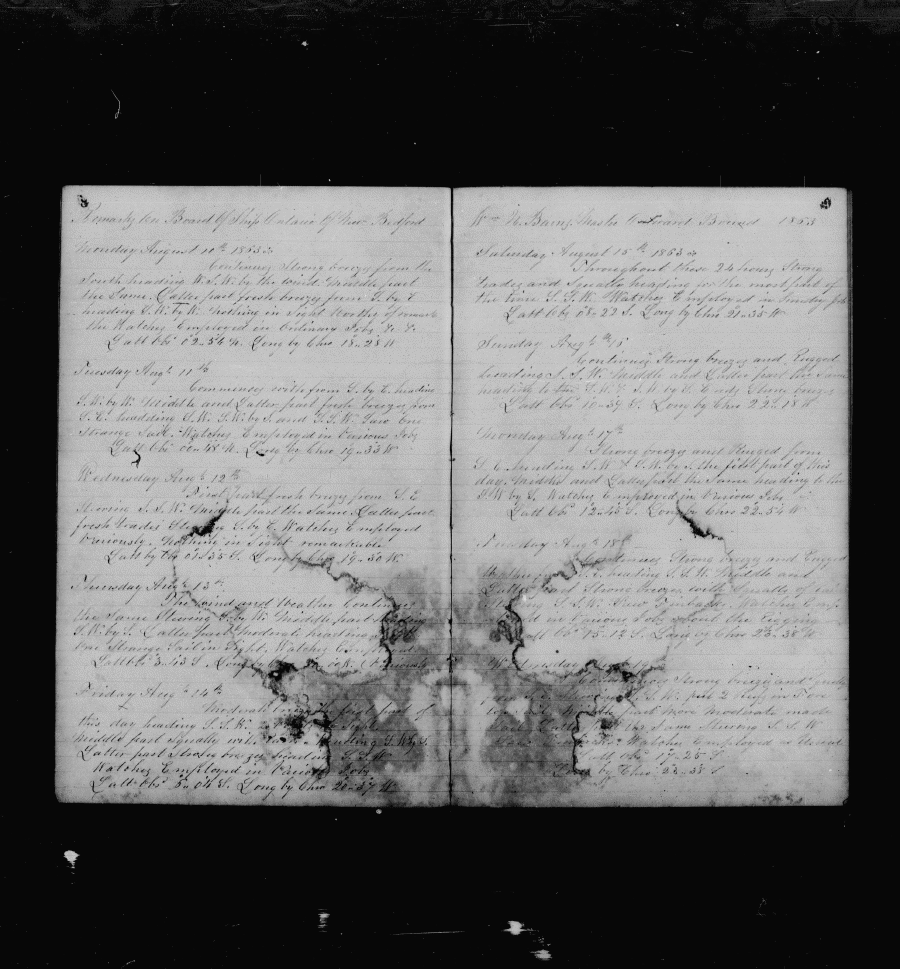 Remarks on Board Of Ship Catawa Of New Bedford
Monday August 10th 1863
Continues Strong breezes from the
South heading W.S.W. by the wind. Middle part
the Same. Latter part fresh breezes from S. by E
heading S.W. by W. Nothing in Sight Worthy of remark
the Watches Employed in Ordinary Jobs &c &c
Latt Obs 02-54 N. Long by Chro 18-28 W
Tuesday Augt 11th
Commences with from S. by E. heading
S.W. by W. Middle and Latter part fresh breezes from
S.E. heading S.W. S.W. by S. and S.S.W. Saw One
Strange Sail. Watches Employed in Various Jobs
Latt Obs 00-48 N. Long by Chro 19-33 W
Wednesday Augt 12th
First part fresh breezes from S.E
Steering S.S.W. Middle part the Same. Latter part
fresh Trades S. by E. Watches Employed
Variously. Nothing in Sight remarkable
Latt by Obs 01-35 S. Long by Chro 19-50 W
Thursday Augt 13th
The wind and Weather Continues
the Same Steering S. by W. Middle part
S.W. by S. Latter part moderate heading
One Strange Sail in Sight. Watches Employed
Latt Obs 3-43 S. Long by Variously
Friday Augt 14th
Moderate first part of
this day heading S.S.W.
Middle part Squally with heading S.W. by S.
Latter part Strong breezes heading S.S.W
Watches Employed in Various Jobs
Latt Obs 5-04 S. Long by Chro 20-37 W
Wm N. Barns Master Outward Bound 1863
Saturday August 15th 1863
Throughout these 24 hours Strong
Trades and Squally heading for the most part of
the time S.S.W. Watches Employed in Sundry Jobs
Latt Obs 08-22 S. Long by Chro 21-35 W
Sunday Augt 16th
Continues Strong breezes and Rugged
heading S.S.W. Middle and Latter part the Same
heading to the S.W. & S.W. by S. Ends Strong breezes
Latt Obs 10-37 S. Long by Chro 22-18 W
Monday Augt 17th
Strong breezes and Rugged from
S.E. heading S.W & S.W. by S. the first part of this
day. Middle and Latter part the Same heading to the
S.W by S. Watches Employed in Various Jobs
Latt Obs 12-48 S. Long by Chro 22-54 W
Tuesday Augt 18th
Continues Strong breezes and Rugged
Weather S.E. heading S.S.W. Middle and
Latter part Strong breezes with Squalls of
S.S.W. Saw Finbacks. Watches
in Various Jobs about the rigging
Latt Obs 15-12 S. Long by Chro 23-38 W
Wednesday
Strong breezes and
S.W. put 2 Reefs in Fore
part More Moderate made
the Same Steering S.S.W
Watches Employed as Usual
Latt Obs 17-25 S
Long by Chro 23-38